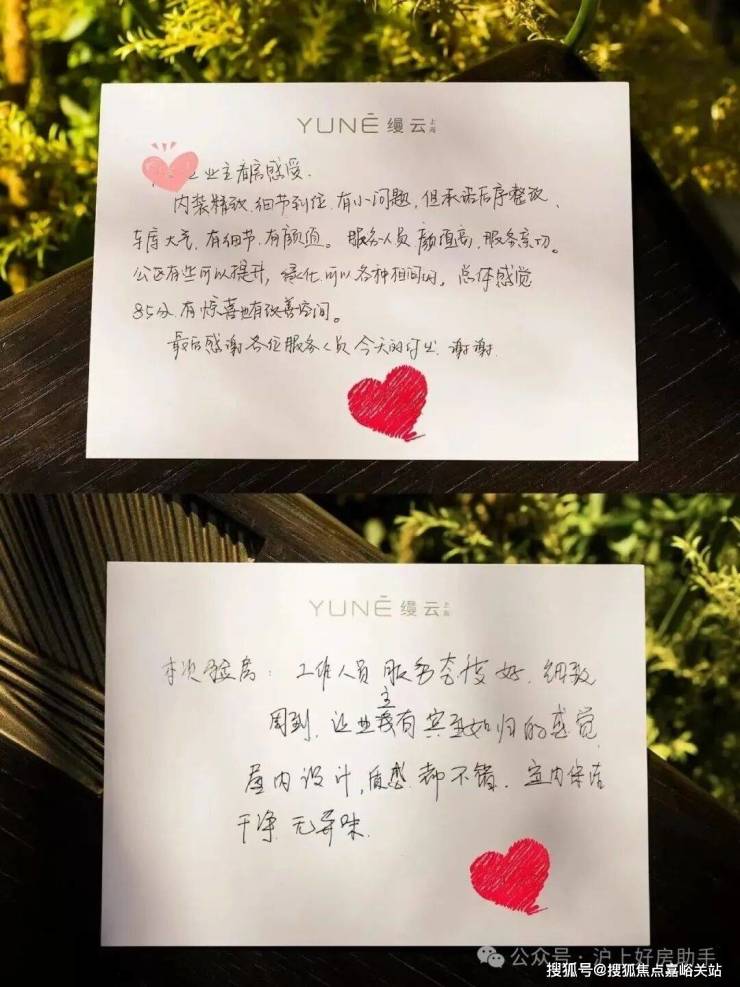 YUNĒ 缦云 上海
业主看房感受.
内装精致.细节到位.有小问题,但承诺后序整改、
车库大气.有细节.有颜值。服务人员颜值高,服务亲切。
公区有些可以提升,绿化可以各种相间的。总体感觉
85分.有惊喜也有改善空间。
最后感谢各位服务人员今天的付出.谢谢.
YUNĒ 缦云 上海
本次验房:工作人员服务态度好.细致
周到.让业主有宾至如归的感觉
屋内设计,质感都不错.室内保洁
干净 无异味.
公众号·沪上好房助手
搜狐号@搜狐焦点嘉峪关站